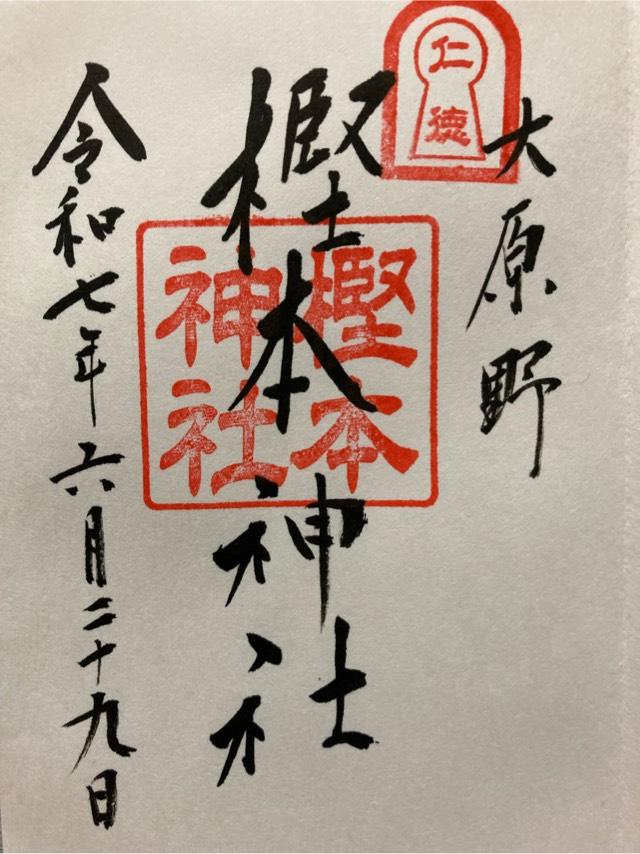 大原野
仁
徳
樫本神社
樫本
神社
令和七年六月二十九日